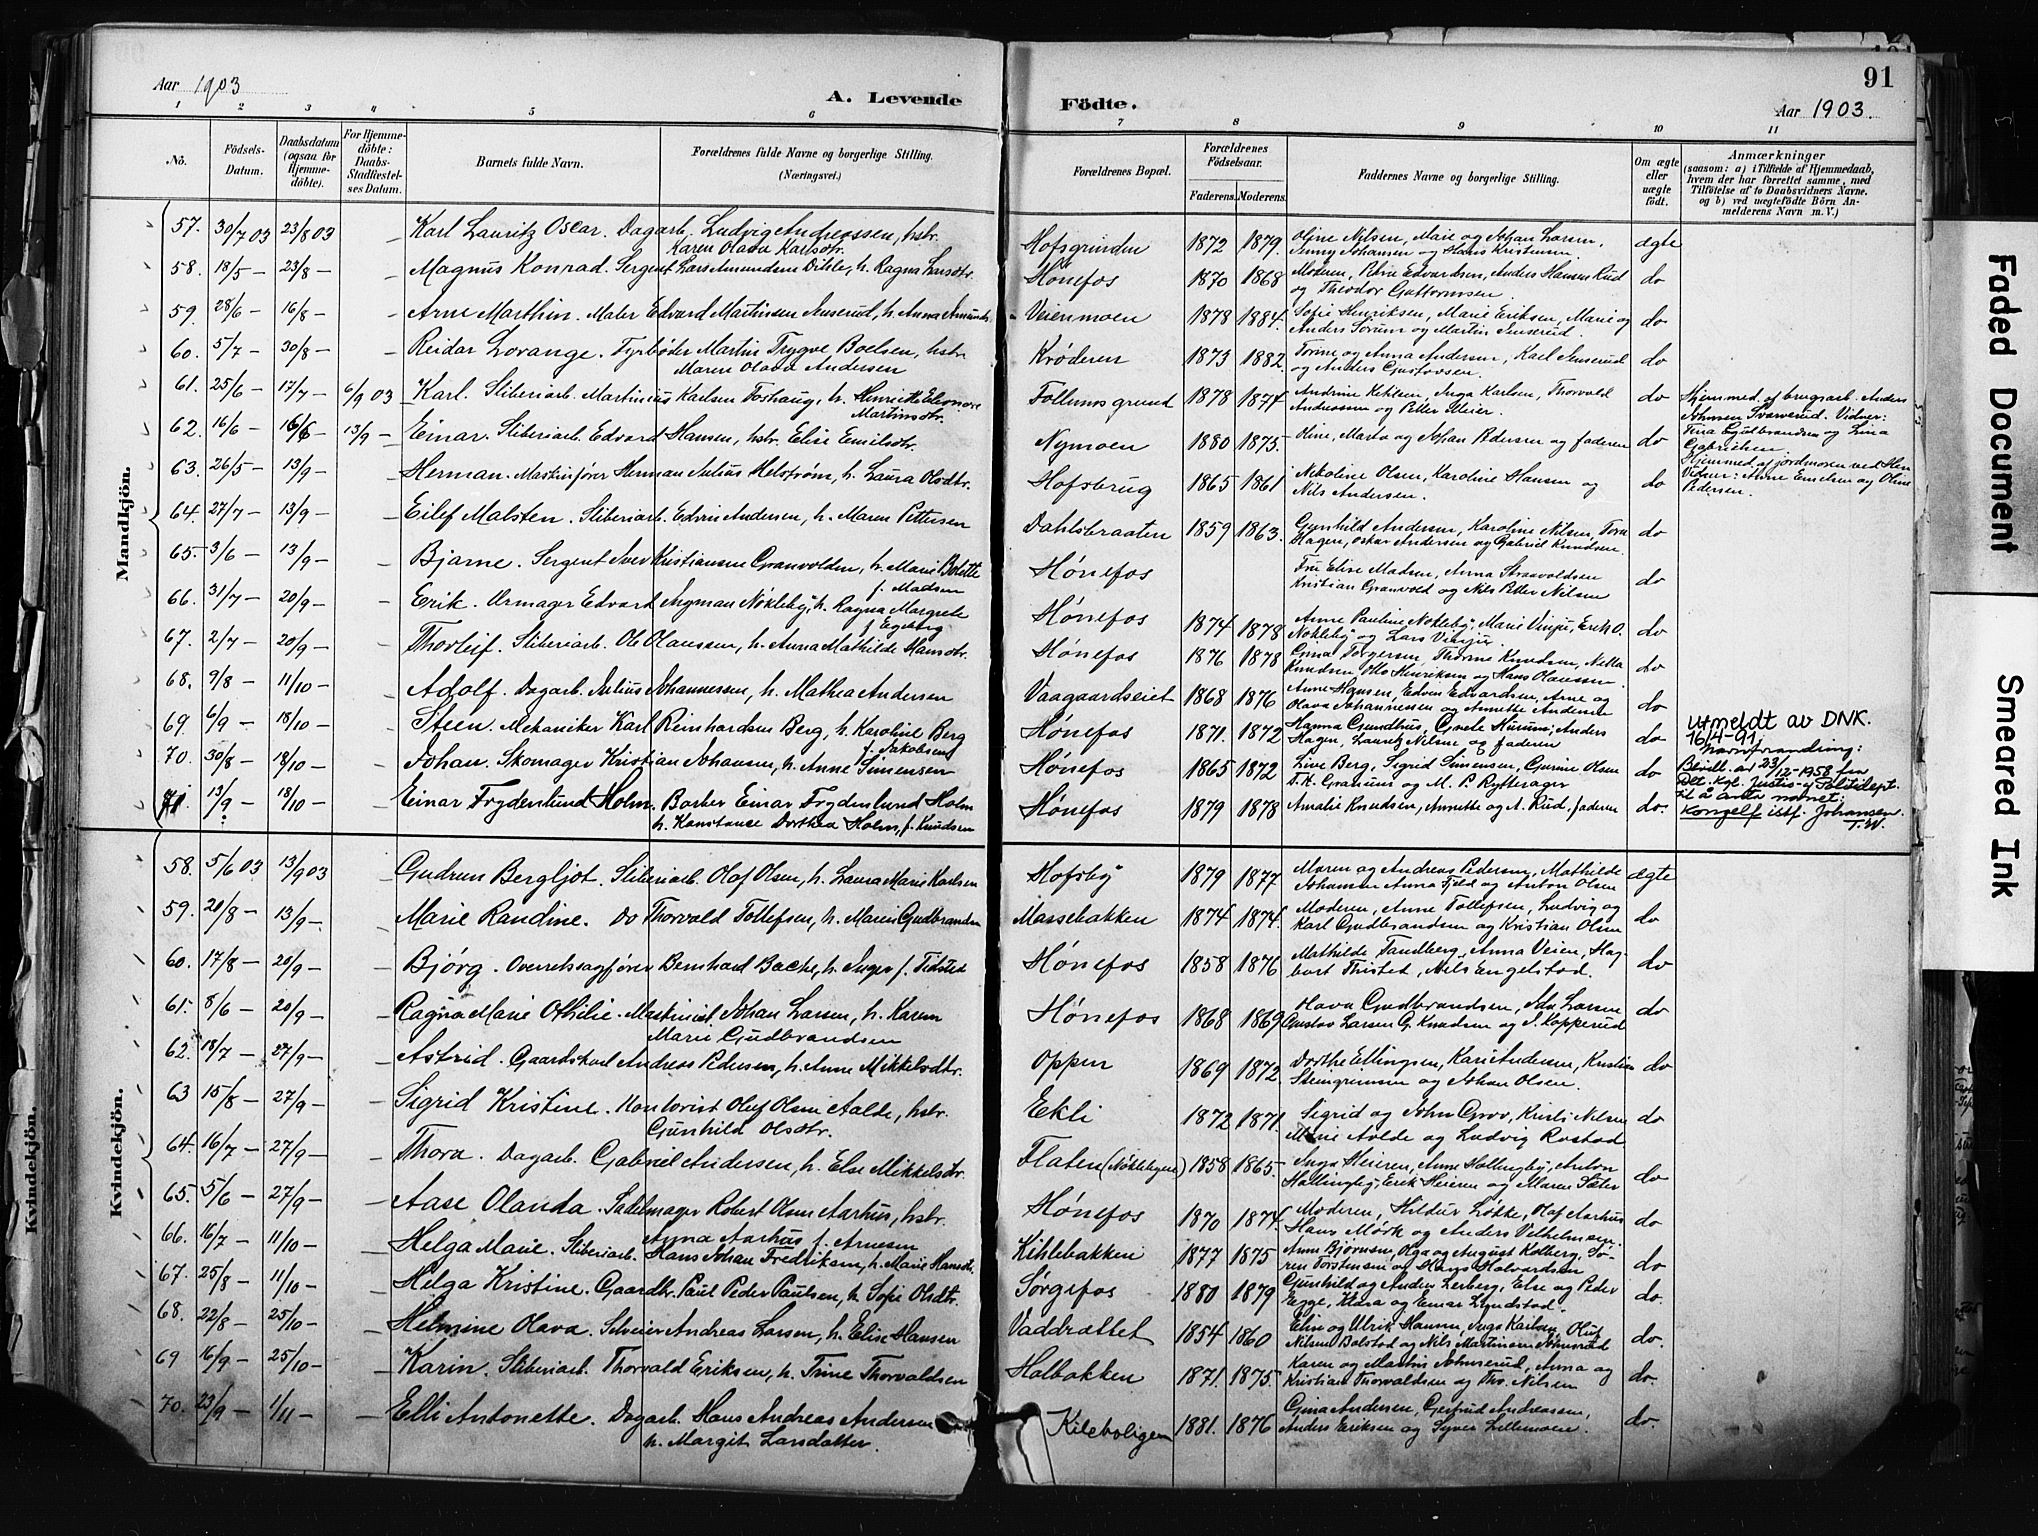 91
Aar 1903
A. Levende Födte.
Aar 1903.
1 2 3 4 5 6 7 8 9 10 11
No. Födsels-Datum. Daabsdatum (ogsaa for Hjemme-döbte). For Hjemme-döbte: Daabs-Stadfæstel-ses Datum. Barnets fulde Navn. Forældrenes fulde Navne og borgerlige Stilling. (Næringsvei.) Forældrenes Bopæl. Forældrenes Födselsaar. Faderens. Moderens. Faddernes Navne og borgerlige Stilling. Om ægte eller uægte født. Anmærkninger (saasom: a) i Tilfælde af Hjemmedaab, hvem der har forrettet samme, med Tilföielse af to Daabsvidners Navne, og b) ved uægtefödte Börn An-melderens Navn m. V.)
Mandkjön.
57. 30/7 03 23/8 03 – Karl Lauritz Oscar. Dagarb. Ludvig Andreassen, hstr. Karen Olava Karlsdtr. Hofsgrunden 1872 1879 Oline Nilsen, Marie og Johan Larsen, Jenny Johansen og Hans Kristensen ægte
58. 18/5 – 23/8 – – Magnus Konrad. Sergent Lars Amundsen Dihle, h. Ragna Larsdtr. Hønefos 1870 1868 Moderen, Edvardsen, Anders Hansen Rud og Theodor Guttormsen do
59. 28/6 – 16/8 – – Arne Marthin. Maler Edvard Martinsen Anserud, h. Anna Amunds. Veienmoen 1878 1884. Sofie Henriksen, Marie Eriksen, Marie og Anders Sørum og Martin Anserud. do
60. 5/7 – 30/8 – – Reidar Lorange. Fyrbøder Martin Trygve Boelsen, hstr. Maren Olava Andersen Krøderen 1873 1882 Torine og Anna Andersen, Karl Anserud og Anders Gustavsen. do
61. 25/6 – 17/7 – 6/9 03 Karl. Sliberiarb. Martinius Karlsen Toshaug, h. Henriette Eleonore Martinsdtr. Follumsgrund 1878 1874 Andrine Kihlsen, Inga Karlsen, Thorvald Andreassen og Petter Meier. do Hjemmed. af brugsarb. Anders Johnsen Svarverud. Vidner: Tina Gulbrandsen og Lina Gabrielsen
62. 16/6 – 16/6 13/9 – Einar. Sliberiarb. Edvard Hansen, hstr. Elise Emilsdtr. Nymoen 1880 1875. Oline, Marta og Johan Pedersen og faderen do Hjemmed. af jordmoren ved Hen Vidner: Anne Emelsen og Oline Pedersen.
63. 26/5 – 13/9 – Herman. Maskinfører Herman Julius Helstrøm, h. Laura Olsdtr. Hofsbrug 1865 1861 Nikoline Olsen, Karoline Hansen og Nils Andersen. do
64. 27/7 – 13/9 – – Eilef Malsten. Sliberiarb. Edvin Andersen, h. Maren Pettersen Dahlsbraaten 1859 1863. Gunhild Andersen, Karoline Nilsen, Tora Hagen, Oskar Andersen og Gabriel Knudsen. do
65– 3/6 – 13/9 – – Bjarne. Sergent Iver Kristiansen Granvolden, h. Marie Bolette f. Madsen Hønefos Fru Elise Madsen, Anna Strandvoldsen Kristian Granvold og Nils Petter Nilsen do
66. 31/7 – 20/9 – – Erik. Urmager Edvard Nøkleby, h. Ragna Margrete f. Egeberg Hønefos 1874 1878 Anne Pauline Nøkleby, Marie Vinju, Erik O. Nøkleby og Lars Vinju do
67. 2/7 – 20/9 – – Thorleif. Sliberiarb. Ole Olaussen, h. Anna Mathilde Hansdtr. Hønefos 1876 1878 Torgersen, Thorine Knudsen, Knudsen, Otto Henriksen og Hans Olaussen do
68. 9/8 – 11/10 – – Adolf. Dagarb. Julius Johannessen, h. Mathea Andersen Vaagaardseiet 1868 1876 Anne Hansen, Edvin Edvardsen, Arne og Olava Johannessen og Annette Andersen do
69. 6/9 – 18/10 – – Steen. Mekaniker Karl Reinhardsen Berg, h. Karoline Berg f. Jakobsen Hønefos 1871. 1872 Hanna Gundhus, Anders Hagen, Lauritz Nilsen og faderen do Utmeldt av DNK. 16/4-91.
70. 30/8 – 18/10 – – Johan. Skomager Kristian Johansen, h. Anne Simensen Hønefos 1865 1872 Live Berg, Sigrid Simensen, Gurine Olsen T. K. Granum og M. P. Rytterager do Navneforandring: Bevilt. av 23/12-1958 fra Det. Kgl. Justis- og Politidept. til å anta navnet: Kongelf istf. Johansen. T.W.
71 13/9 – 18/10 – – Einar Frydenlund Holm. Barber Einar Frydenlund Holm h. Konstanse Dorthea Holm, f. Knudsen Hønefos 1879 1878 Amalie Knudsen, Annette og A. Rud, faderen do.
Kvindekjön.
58. 5/6 03 13/9 03 – Gudrun Bergljot. Sliberiarb. Olaf Olsen, h. Laura Marie Karlsen Hofsby 1879 1877 Maren og Andreas Pedersen, Mathilde Johansen Anna Fjeld og Anton Olsen ægte
59. 20/8 – 13/9 – – Marie Randine. Do Thorvald Tollefsen, h. Maren Gudbrandsen Massebakken 1874 1874. Moderen, Anne Tollefsen, Ludvig og Karl Gudbrandsen og Kristian Olsen do
60. 17/8 – 20/9 – – Bjørg. Overretssagfører Bernhard Bache, h. Inger f. Tidsted Hønefos 1858 1876 Mathilde Tandberg, Anna Veien, Hag-bart Thisted, Nils Engelstad. do
61. 8/6 – 20/9 – – Ragna Marie Othilie. Maskinist Johan Larsen, h. Karen Marie Gudbrandsen Hønefos 1868 1869 Olava Gudbrandsen, Ida Larsen Gustav Larsen G. Knudsen og S. Kopperud do
62. 18/7 – 27/9 – – Astrid. Gaardskarl Andreas Pedersen, h. Anne Mikkelsdtr. Oppen 1869 1872. Dorthe Ellingsen, Kari Andersen, Kristian Steingrimsen og Johan Olsen. do
63 15/8 – 27/9 – – Sigrid Kristine. Kontorist Oluf Olsen Aalde, hstr. Gunhild Olsdtr. Eekli 1872 1871. Sigrid og John Grov, Kristi Nilsen Marie Aalde og Ludvig Rostad do
64. 16/7 – 27/9 – – Thora. Dagarb. Gabriel Andersen, h. Else Mikkelsdtr. Flaten (Nøklebyeie) 1858 1865. Inga Heieren, Anne Hallingby, Anton Hallingby, Erik Heieren og Maren Sæter do
65. 5/6 – 27/9 – – Aase Olanda. Salmager Robert Olsen Aarhus, hstr. Anna Aarhus f. Arnesen Hønefos 1870 1874. Moderen, Hildur Løkke, Olaf Aarhus Hans Mørk og Anders Vilhelmsen. do
66. 16/7 – 11/10 – – Helga Marie. Sliberiarb. Hans Johan Fredriksen, h. Marie Hansdtr. Kihlebakken 1877 1875 Anne Bjørnsen, Olga og August Kolberg, Sø-ren Torstensen og Hans Halvardsen do
67. 25/8 – 11/10 – – Helga Kristine. Gaardbr. Paul Peder Paulsen, h. Sofie Olsdtr. Sørgefos 1880 1879 Gunhild og Anders Lerberg, Else og Peder Egge, Klara og Einar Lyndstad. do.
68. 22/8 – 25/10 – – Helmine Olava. Selveier Andreas Larsen, h. Elise Hansen Vaddrættet 1854 1860 Elin og Ulrik Hansen, Inga Karlsen, Oluf Nilsen Bolstad og Nils Martinsen do.
69 16/9 – 25/10 – – Karin. Sliberiarb. Thorvald Eriksen, h. Trine Thorvaldsen Holbakken 1871. 1875. Karen og Martin Johnsrud, Anna og Kristian Thorvaldsen og Ths. Nilsen do.
70. 23/9 – 1/11 – – Elli Antonette. Dagarb. Hans Andreas Andersen h. Margit Larsdatter. Kileboligen 1881. 1876 Gina Andersen, Gertrud Andreassen, Anders Eriksen og Syver Lillemoen. do.
Kvindekjön.
Faded Document
Smeared Ink